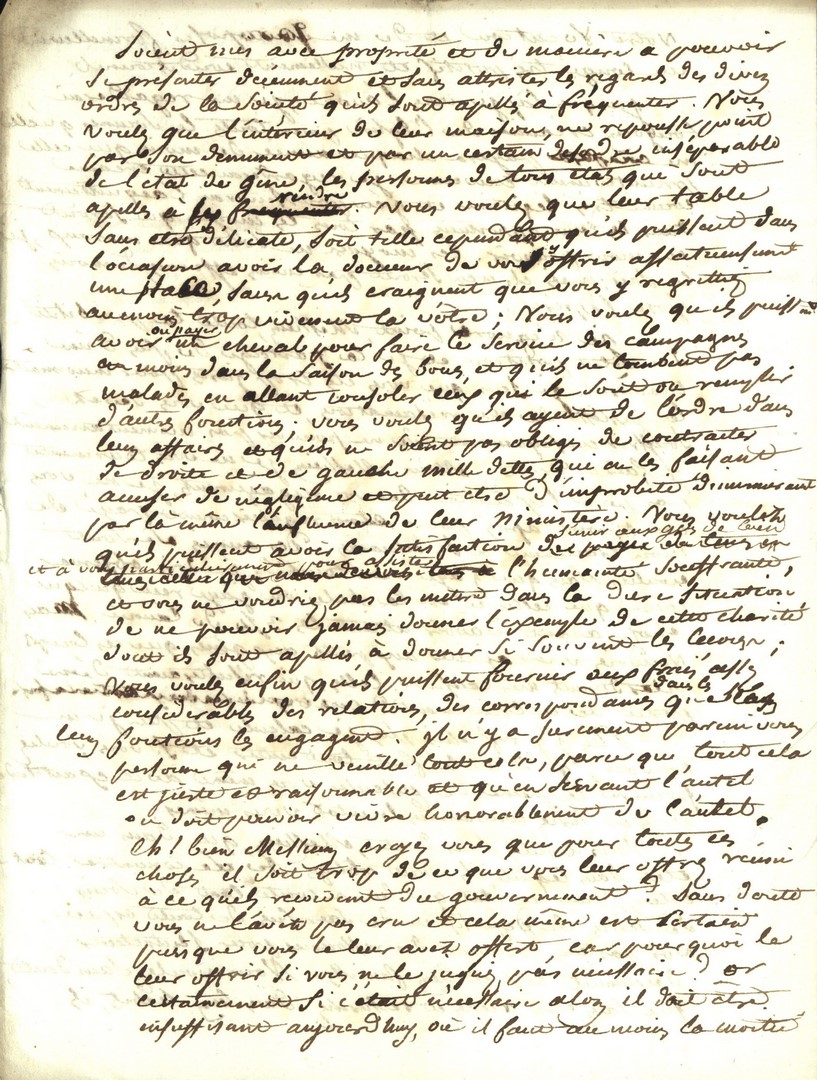 soient mis avec propreté et de maniere a pouvoir
se presenter décemment et sans attrister les regards des divers
ordres de la société qu'ils sont apellés à fréquenter. Vous
voulez que l'intérieur de leur maisons, ne repousse point
par son denument et par un certain desordre inséparable
de l'état de gêne, les personnes de tous etats que sont
apellés à s'y rendre fréquenter. Vous voulez que leur table
sans etre délicate, soit telle cependant qu'ils puissent dans
l'occasion avoir la douceur de vous y offrir affectueusement
une place, sans qu'ils craignent que vous y regrettiez
au moins trop vivement la vôtre; Vous voulez qu'ils puissent
avoir ou payer un cheval pour faire le service des campagnes
au moins dans la saison des boues, et qu'ils ne tombent pas
malades en allant consoler ceux qui le sont ou remplir
d'autres fonctions; vous voulez qu'ils ayent de l'ordre dans
leurs affaires et qu'ils ne soient pas obligés de contracter
de droite et de gauche mille dettes, qui en les faisant
accuser de négligence et peut etre d'improbité diminueroient
par là même l'influence de leur ministère. Vous voulez
qu'ils puissent avoir la satisfaction de s'unir aux gens de bien
et à vous particulierement pour assister l'humanité souffrante,
et vous ne voudriez pas les mettre dans la dure situation
de ne pouvoir jamais donner l'exemple de cette charité
dont ils sont apellés à donner si souvent les leçons;
Vous voulez enfin qu'ils puissent fournir aux frais assez
considérables des relations, des correspondances dans les quelles
leurs fonctions les engagent. il n'y a surement parmi vous
personne qui ne veuille tout cela, parce que tout cela
est juste et raisonnable et qu'en servant l'autel
on doit pouvoir vivre honorablement de l'autel.
Eh! bien Messieurs croyez vous que pour toutes ces
choses il soit trop de ce que vous leur offrez réuni
à ce qu'ils recoivent du gouvernement? Sans doute
vous ne l'avez pas cru et cela même est certain
puisque vous le leur avez offert car pourquoi le
leur offrir si vous ne le jugez pas nécessaire? or
certainement si c'était nécessaire alors il doit être
insuffisant aujourd'huy, où il faut au moins la moitié